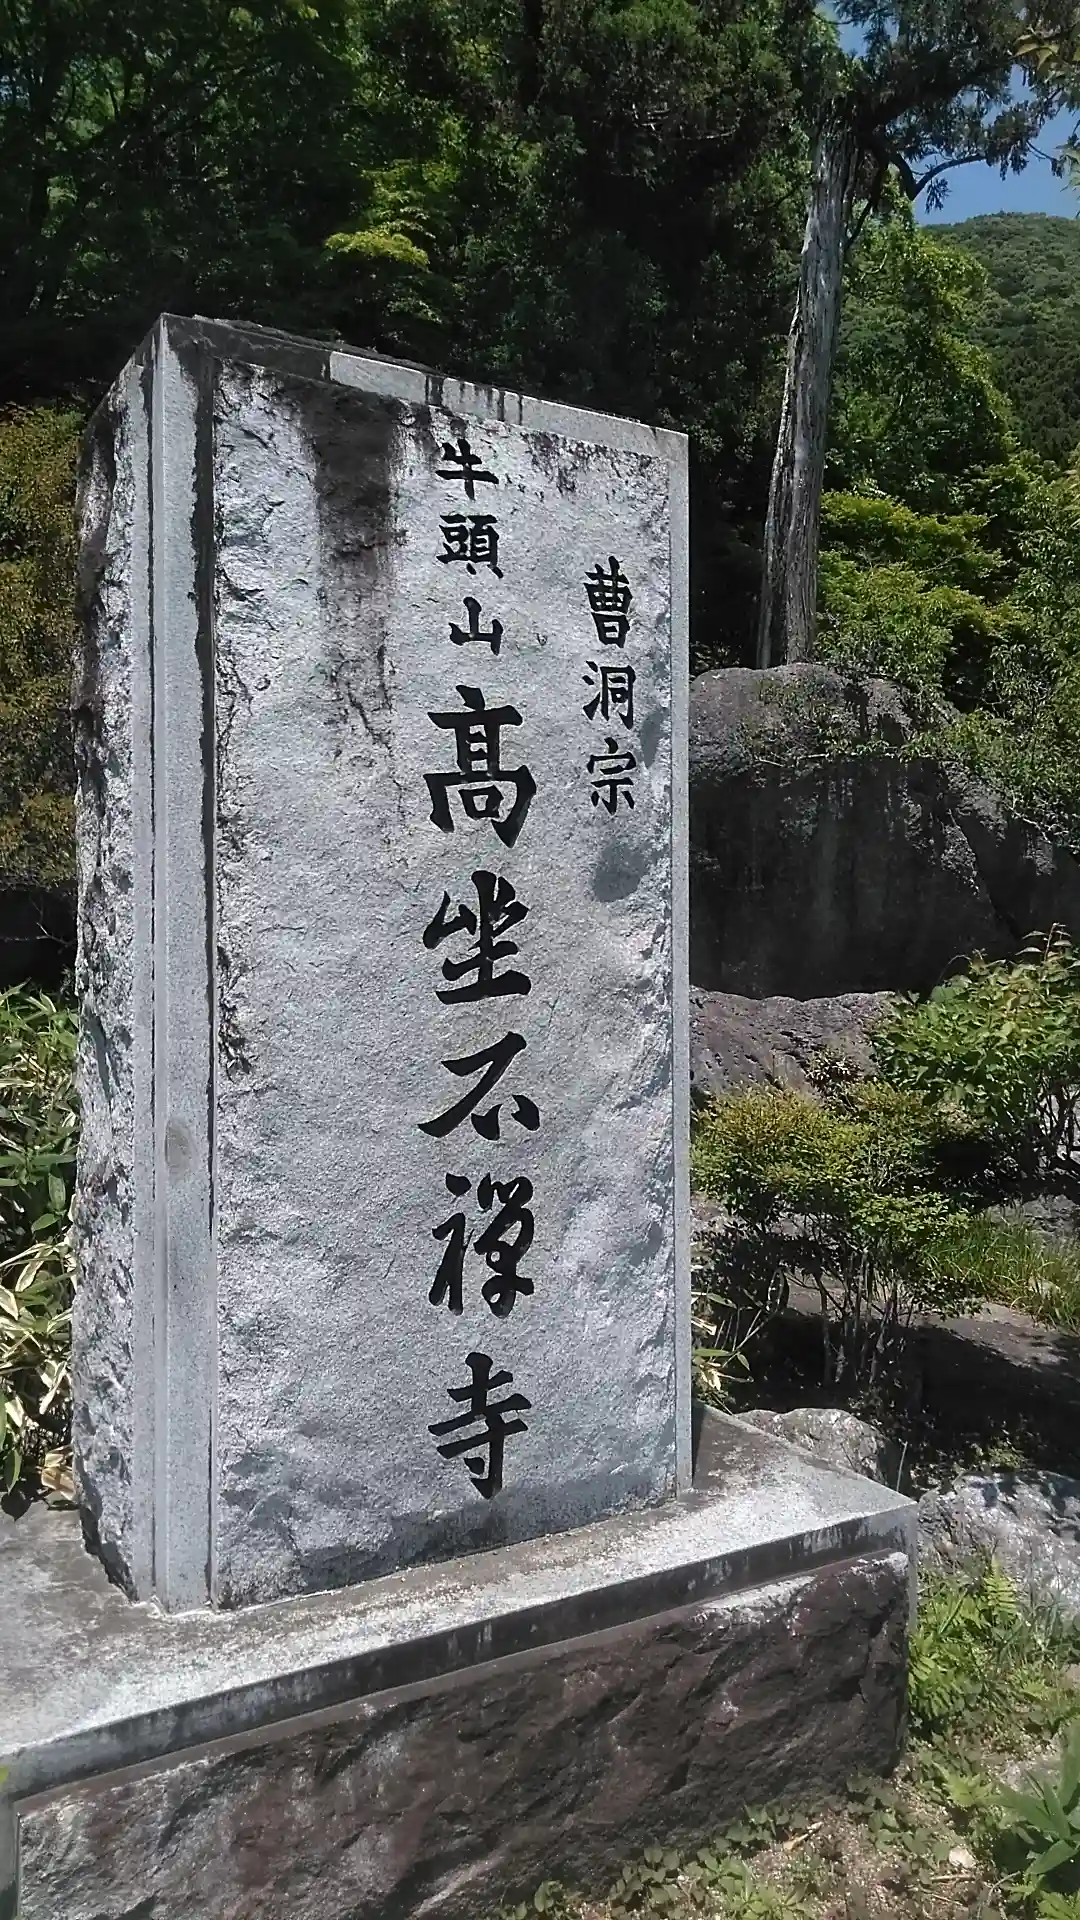 曹洞宗
牛頭山
髙坐石禅寺